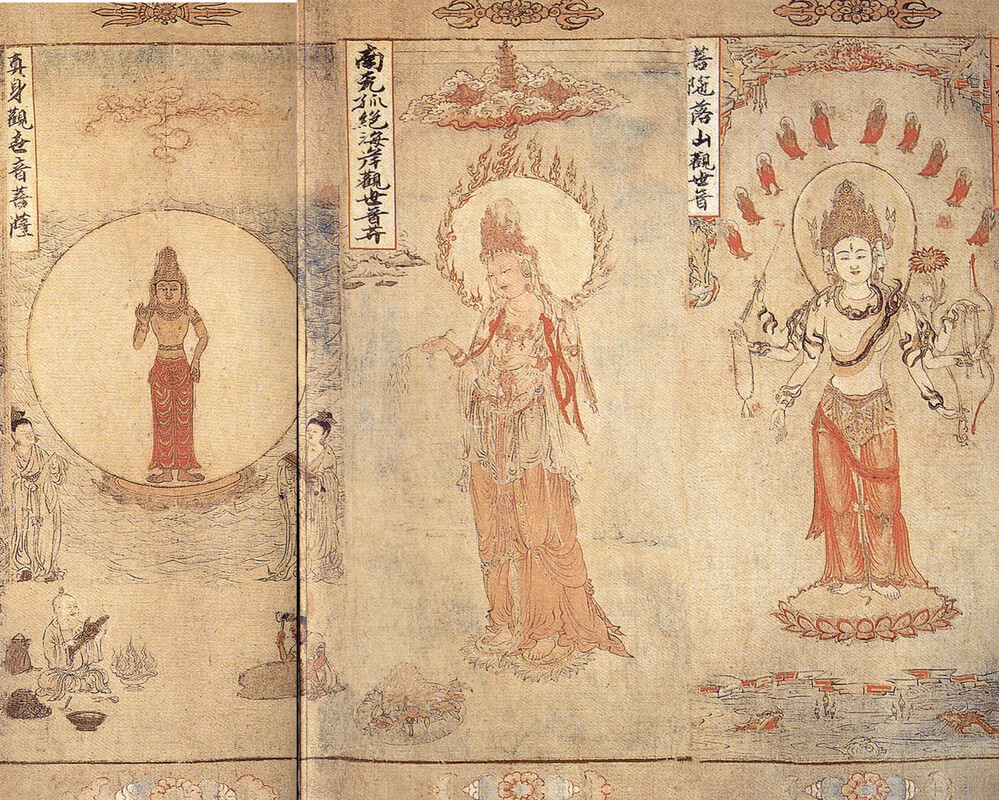 菩陁落山觀世音
南无孤絶海岸觀世音𦬇
真身觀世音菩薩